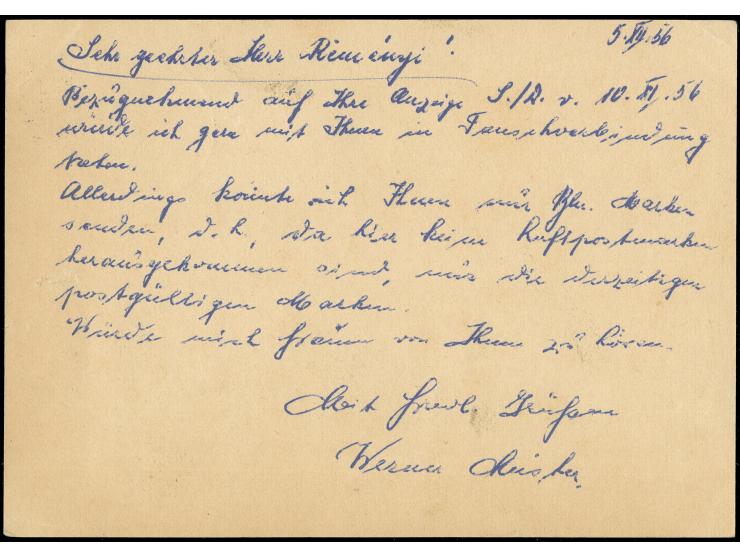 5. XII. 56
Sehr geehrter Herr Reményi!
Bezugnehmend auf Ihre Anzeige S./D. v. 10. XI. 56
würde ich gern mit Ihnen in Tauschverbindung
treten.
Allerdings könnte ich Ihnen nur Bln. Marken
senden, d.h. da hier keine Luftpostmarken
herausgekommen sind, nur die derzeitigen
postgültigen Marken.
Würde mich freuen von Ihnen zu hören.
Mit frdl. Grüßen
Werner Meister.